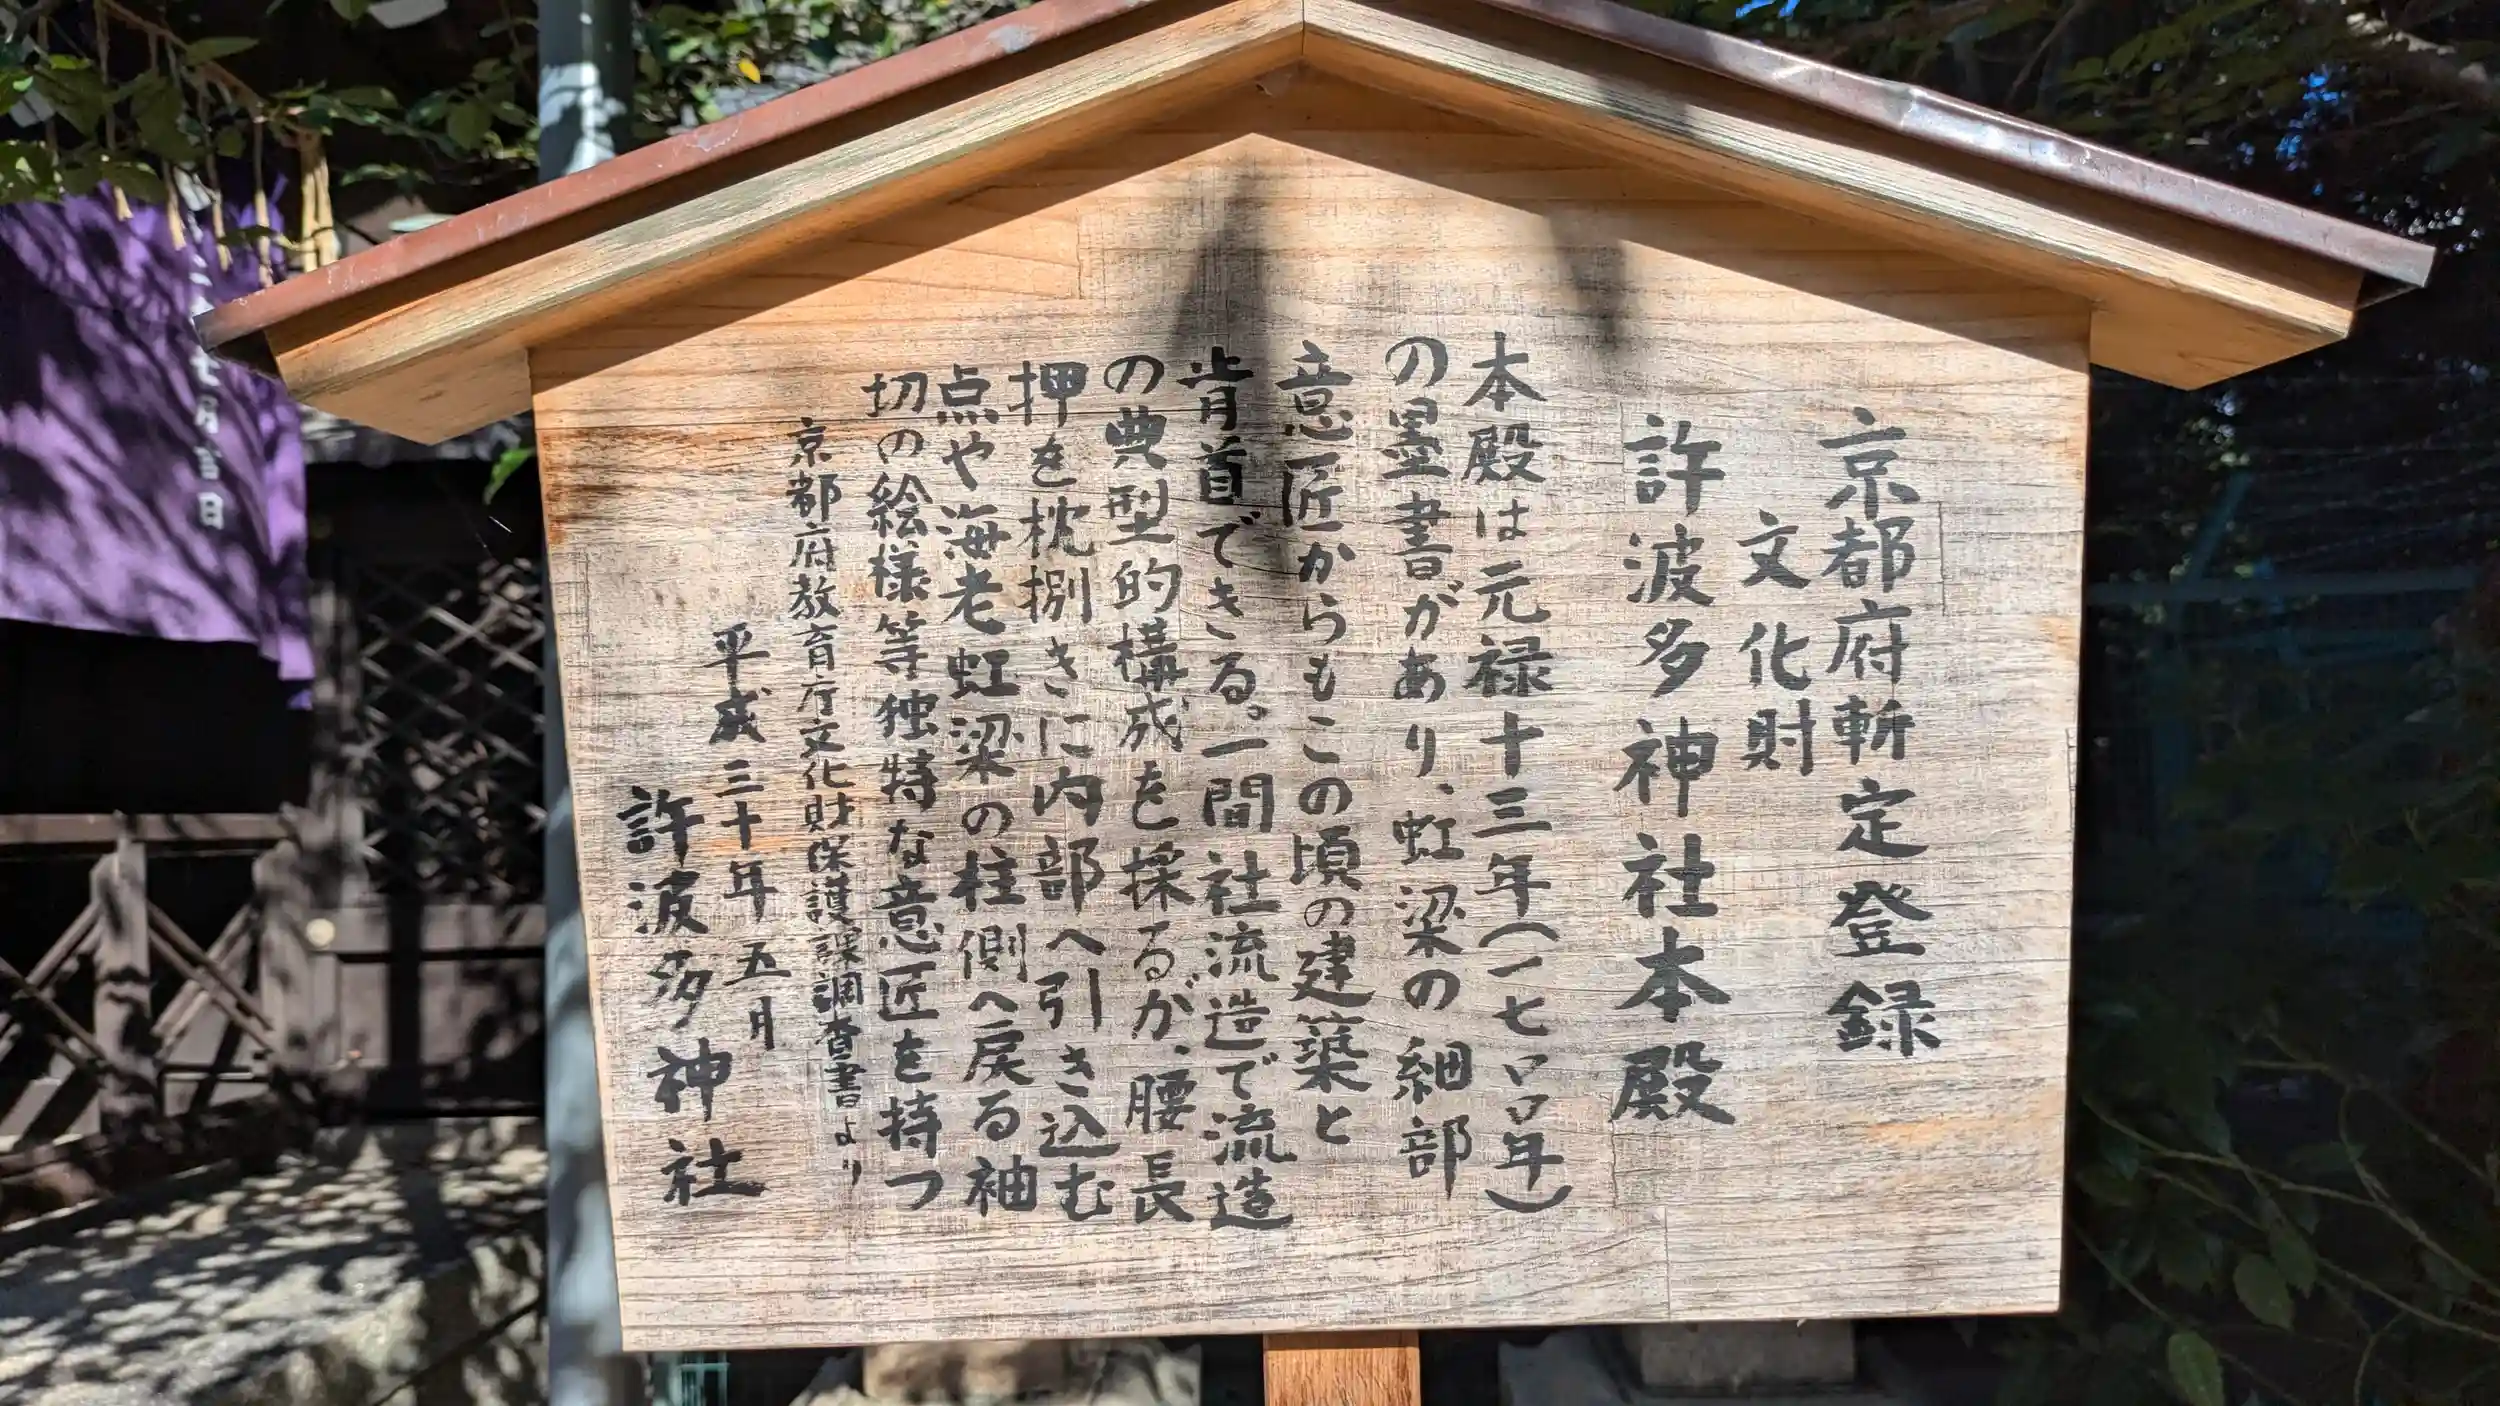 京都府暫定登録
文化財
許波多神社本殿
本殿は元禄十三年(一七〇〇年)
の墨書があり、虹梁の細部
意匠からもこの頃の建築と
肯首できる。一間社流造で流造
の典型的構成を採るが、腰長
押を枕捌きに内部へ引き込む
点や海老虹梁の柱側へ戻る袖
切の絵様等独特な意匠を持つ
京都府教育庁文化財保護課調査書より
平成三十年五月
許波多神社
七月吉日